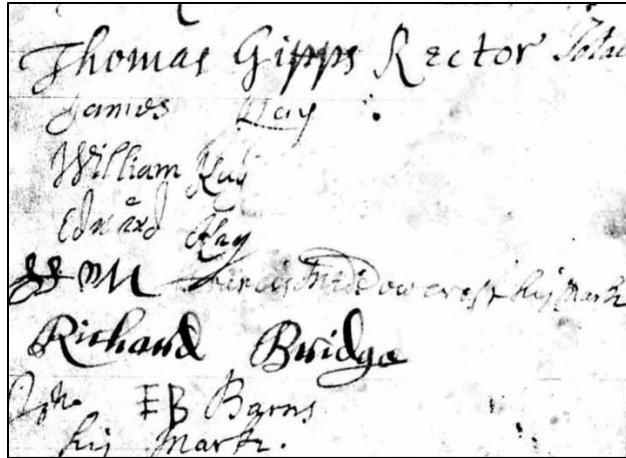 Thomas Gipps Rector
James Kay
William Kay
Edward Kay
Francis Meddowcroft his Mark
Richard Bridge
Jno EB Barns
his Mark.